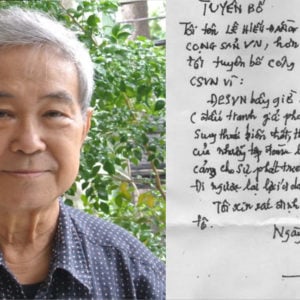 TUYÊN BỐ
Tôi tên LÊ HIẾU ĐẰNG
CỘNG SẢN VN, hơn
tôi tuyên bố công
CSVN vì:
ĐCSVN bây giờ
đấu tranh giải phó
suy thoái biến chất,
của những tập đoàn
cảng cho sự phát
Đi ngược lại lợi ích d
Tôi xin
tô.
Ngày